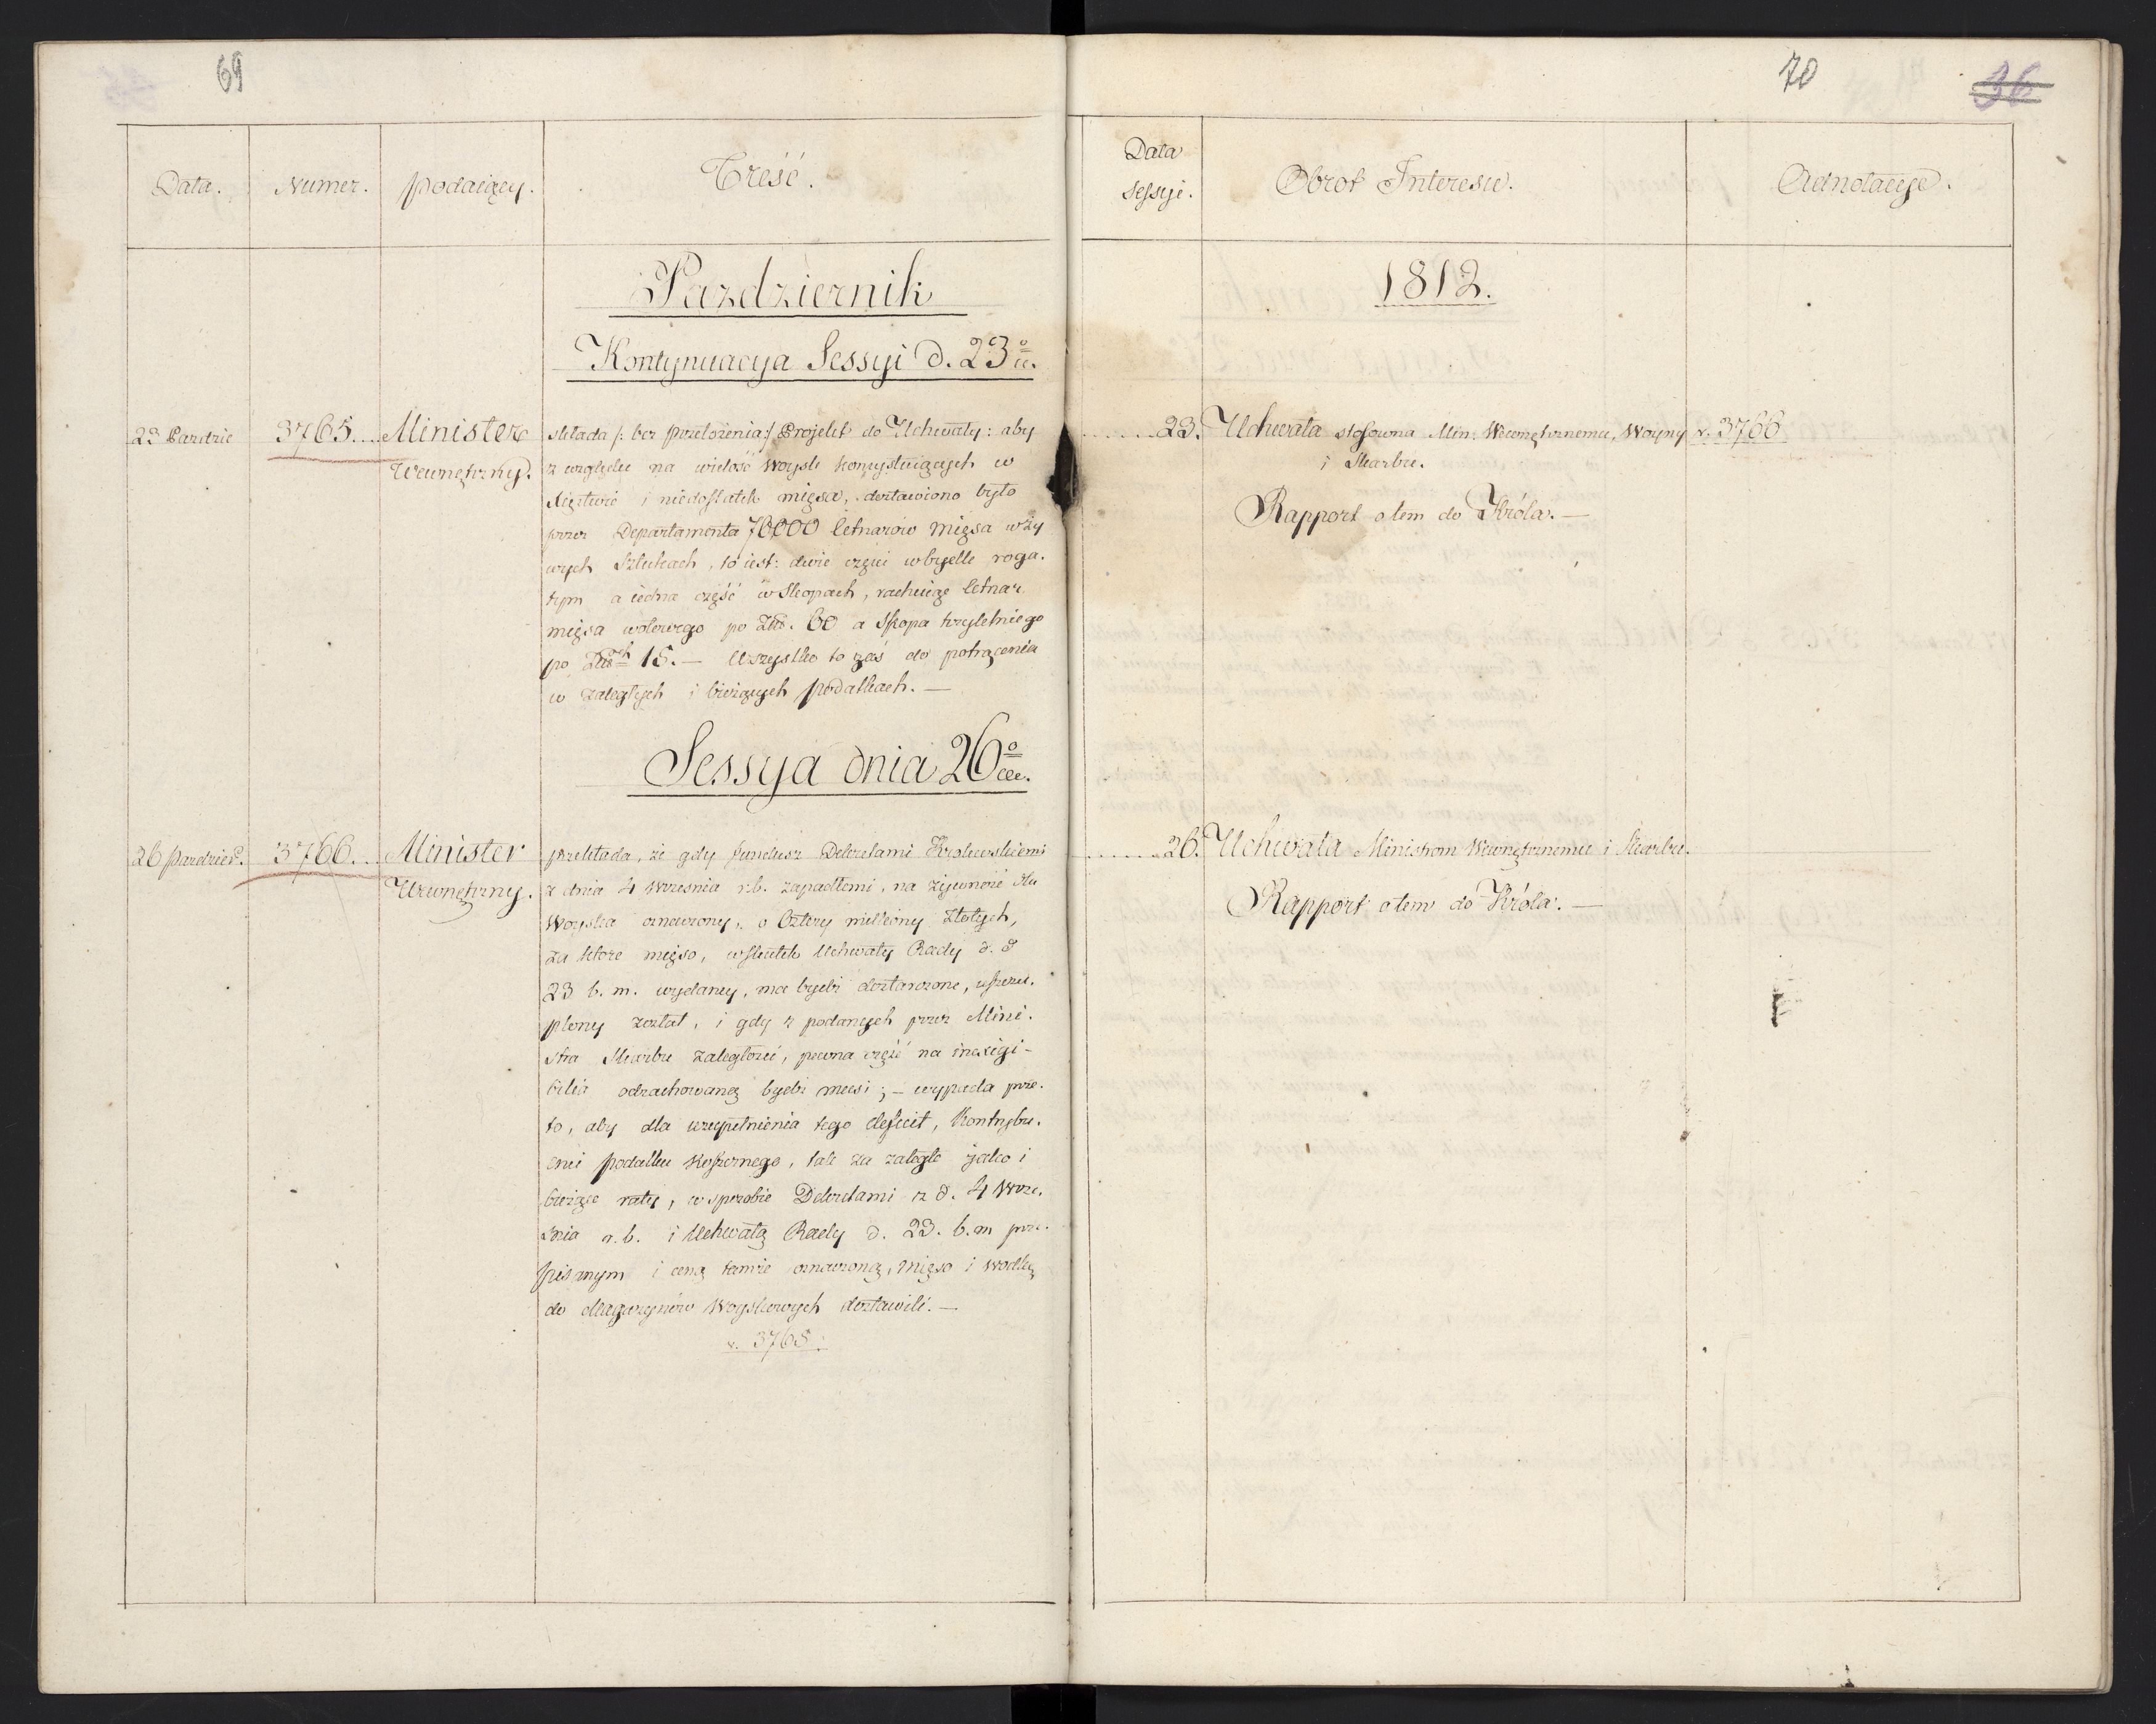 69
Data.
Numer.
podaiący.
Treść.
Pazdziernik
Kontynuacya Sessyi d. 23o
23 Pazdzie
3765
Minister
Wewnętrzny.
składa /: bez przełożenia :/ Projekt do Uchwały: aby
z względu na wielość Woysk konsystuiących w
Xięztwie i niedostatek mięsa, dostawiono było
przez Departamenta 70000 Cetnarów Mięsa w ży
wych Sztukach, to iest: dwie części w bydle roga.
tym a iedna część w Skopach, rachuiąc Cetnar
mięsa wołowego po Złł. 60 a Skopa trzyletniego
po Złłch 15. — Wszystko to zaś do potrącenia
w zaległych i bieżących podatkach. —
Sessya dnia 26o
26 pazdzier.
3766.
Minister
Wewnętrzny.
przekłada, że gdy fundusz Dekretami Krolewskiemi
z dnia 4 Wrzesnia r.b. zapadłemi, na żywność dla
Woyska oznaczony, o Cztery milliony Złotych,
za ktore mięso, w skutek Uchwały Rady d. d
23 b. m. wydaney, ma bydź dostarczone, uszczu.
plony został, i gdy z podanych przez Mini.
stra Skarbu zaległości, pewna część na inexigi-
bilia odrachowaną bydź musi; — wypada prze.
to, aby dla uzupełnienia tego deficit, Kontrybu.
enci podatku Koszernego, tak za zaległe jako i
bieżące raty, w sposobie Dekretami z d. 4 Wrze.
śnia r. b. i Uchwałą Rady d. 23. b. m prze.
pisanym i ceną tamże oznaczoną, Mięso i Wodkę
do Magazynów Woyskowych dostawili. —
v. 3765.
70
36
Data
Sessyi.
Obrot Interesu.
Adnotacye.
1812.
23.
Uchwała stosowna Min: Wewnętrznemu, Woyny
i Skarbu.
v. 3766
Rapport o tem do Króla. —
26.
Uchwała Ministrom Wewnętrznemu i Skarbu.
Rapport o tem do Króla. —